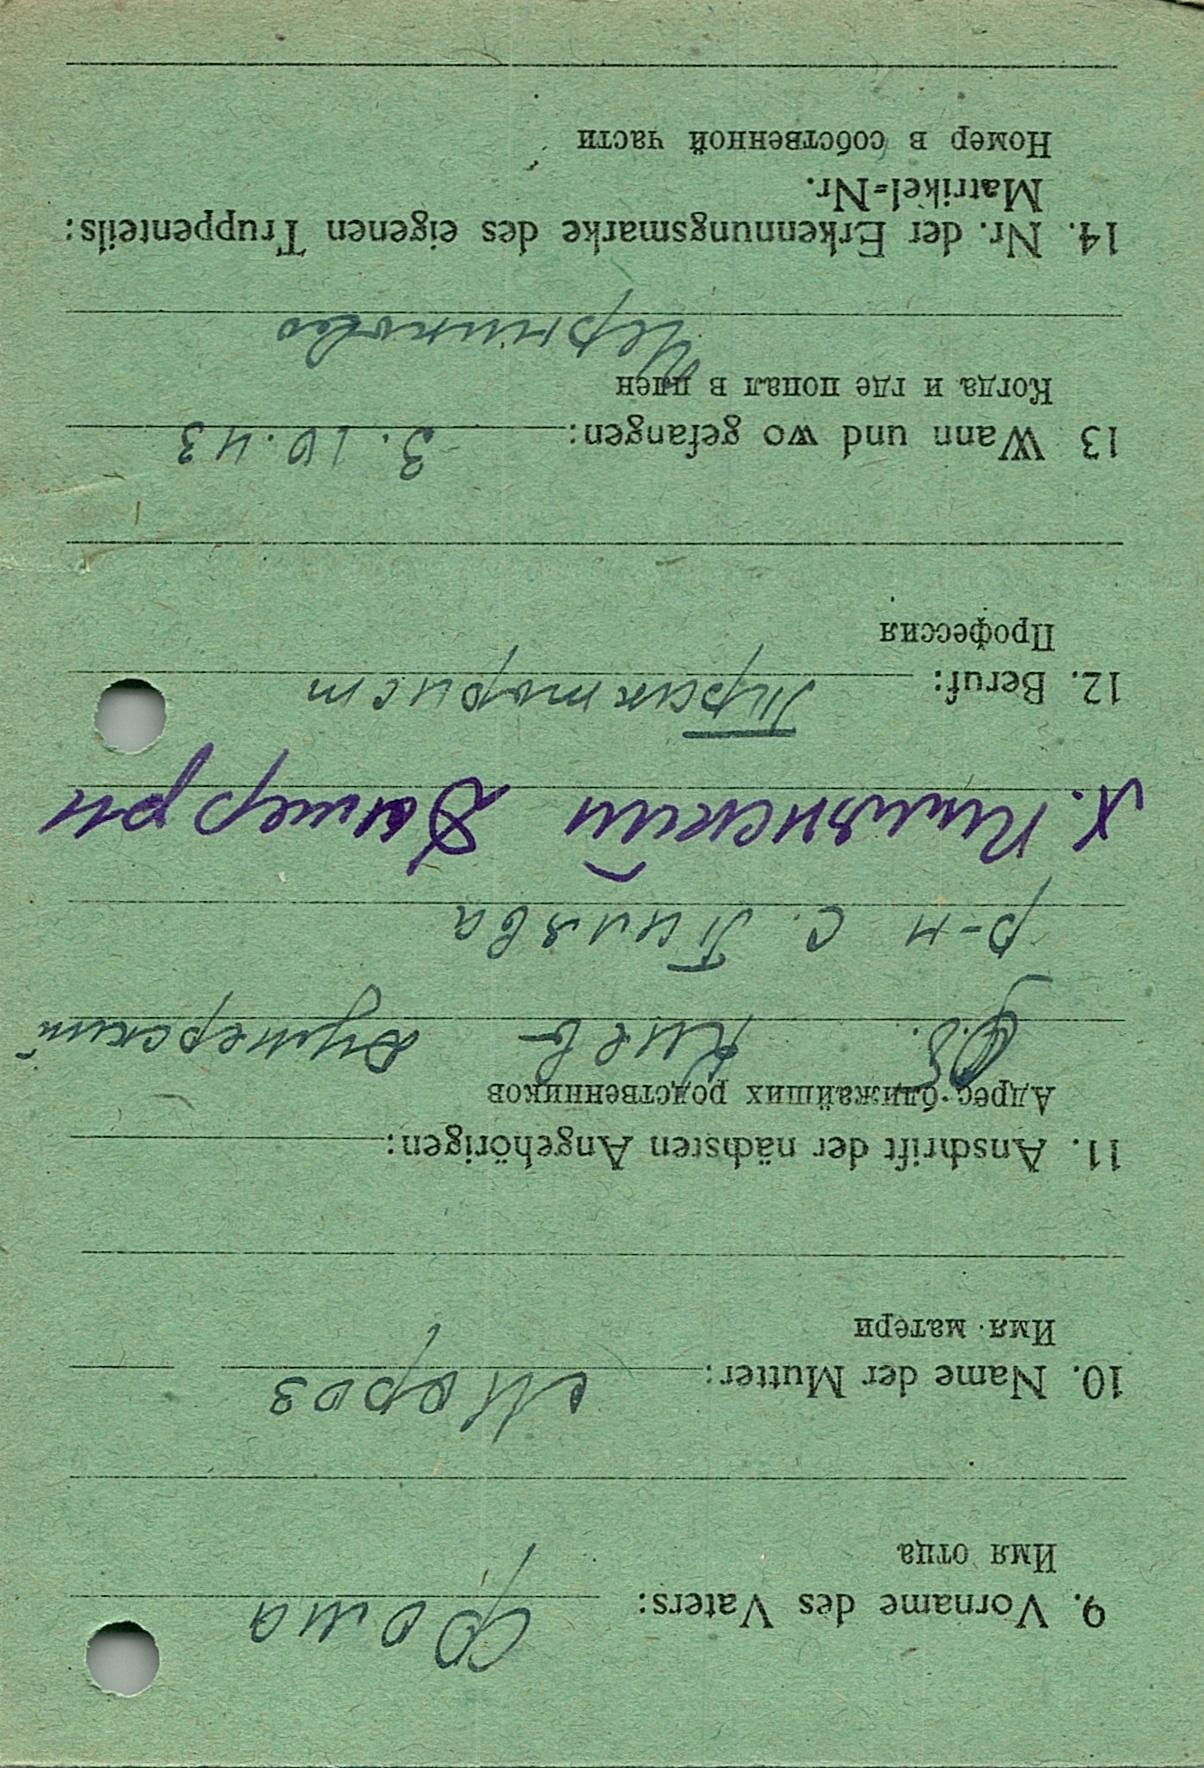 9. Vorname des Vaters: Фома
Имя отца
10. Name der Mutter: Мороз
Имя матери
11. Anschrift der nächsten Angehörigen:
Адрес ближайших родственников
Об. Киев Думерский
р-н с. Пилява
х.
12. Beruf: Тракторист
Профессия
13 Wann und wo gefangen: 3.10.43
Когда и где попал в плен
14. Nr. der Erkennungsmarke des eigenen Truppenteils:
Matrikel=Nr.
Номер в собственной части